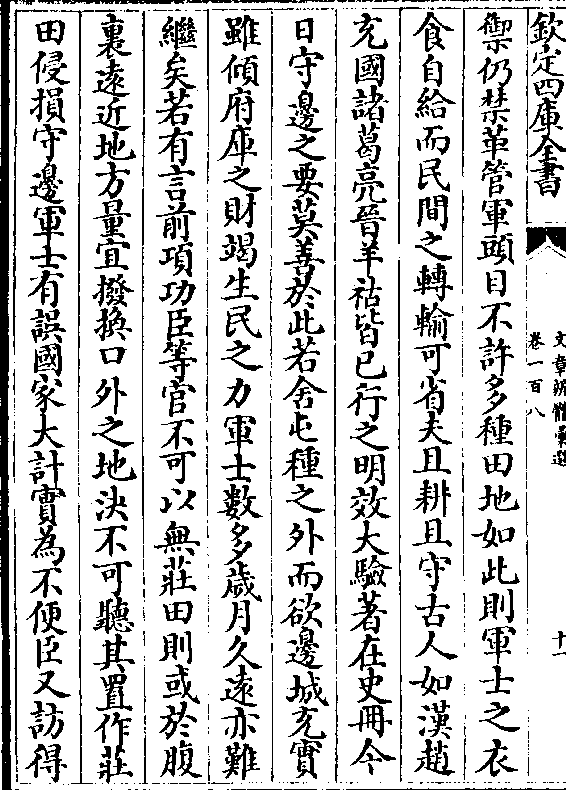 欽定四庫全書
文章辨體彙選
卷一百八
十一
禦仍禁革管軍頭目不許多種田地如此則軍士之衣
食自給而民間之轉輸可省夫且耕且守古人如漢趙
充國諸葛亮晉羊祜皆已行之明效大驗著在史冊今
日守邊之要莫善於此若舍屯種之外而欲邊城充實
雖傾府庫之財竭生民之力軍士數多歲月久遠亦難
繼矣若有言前項功臣等官不可以無莊田則或於腹
裏遠近地方量宜撥換口外之地決不可聽其置作莊
田侵損守邊軍士有誤國家大計實為不便臣又訪得